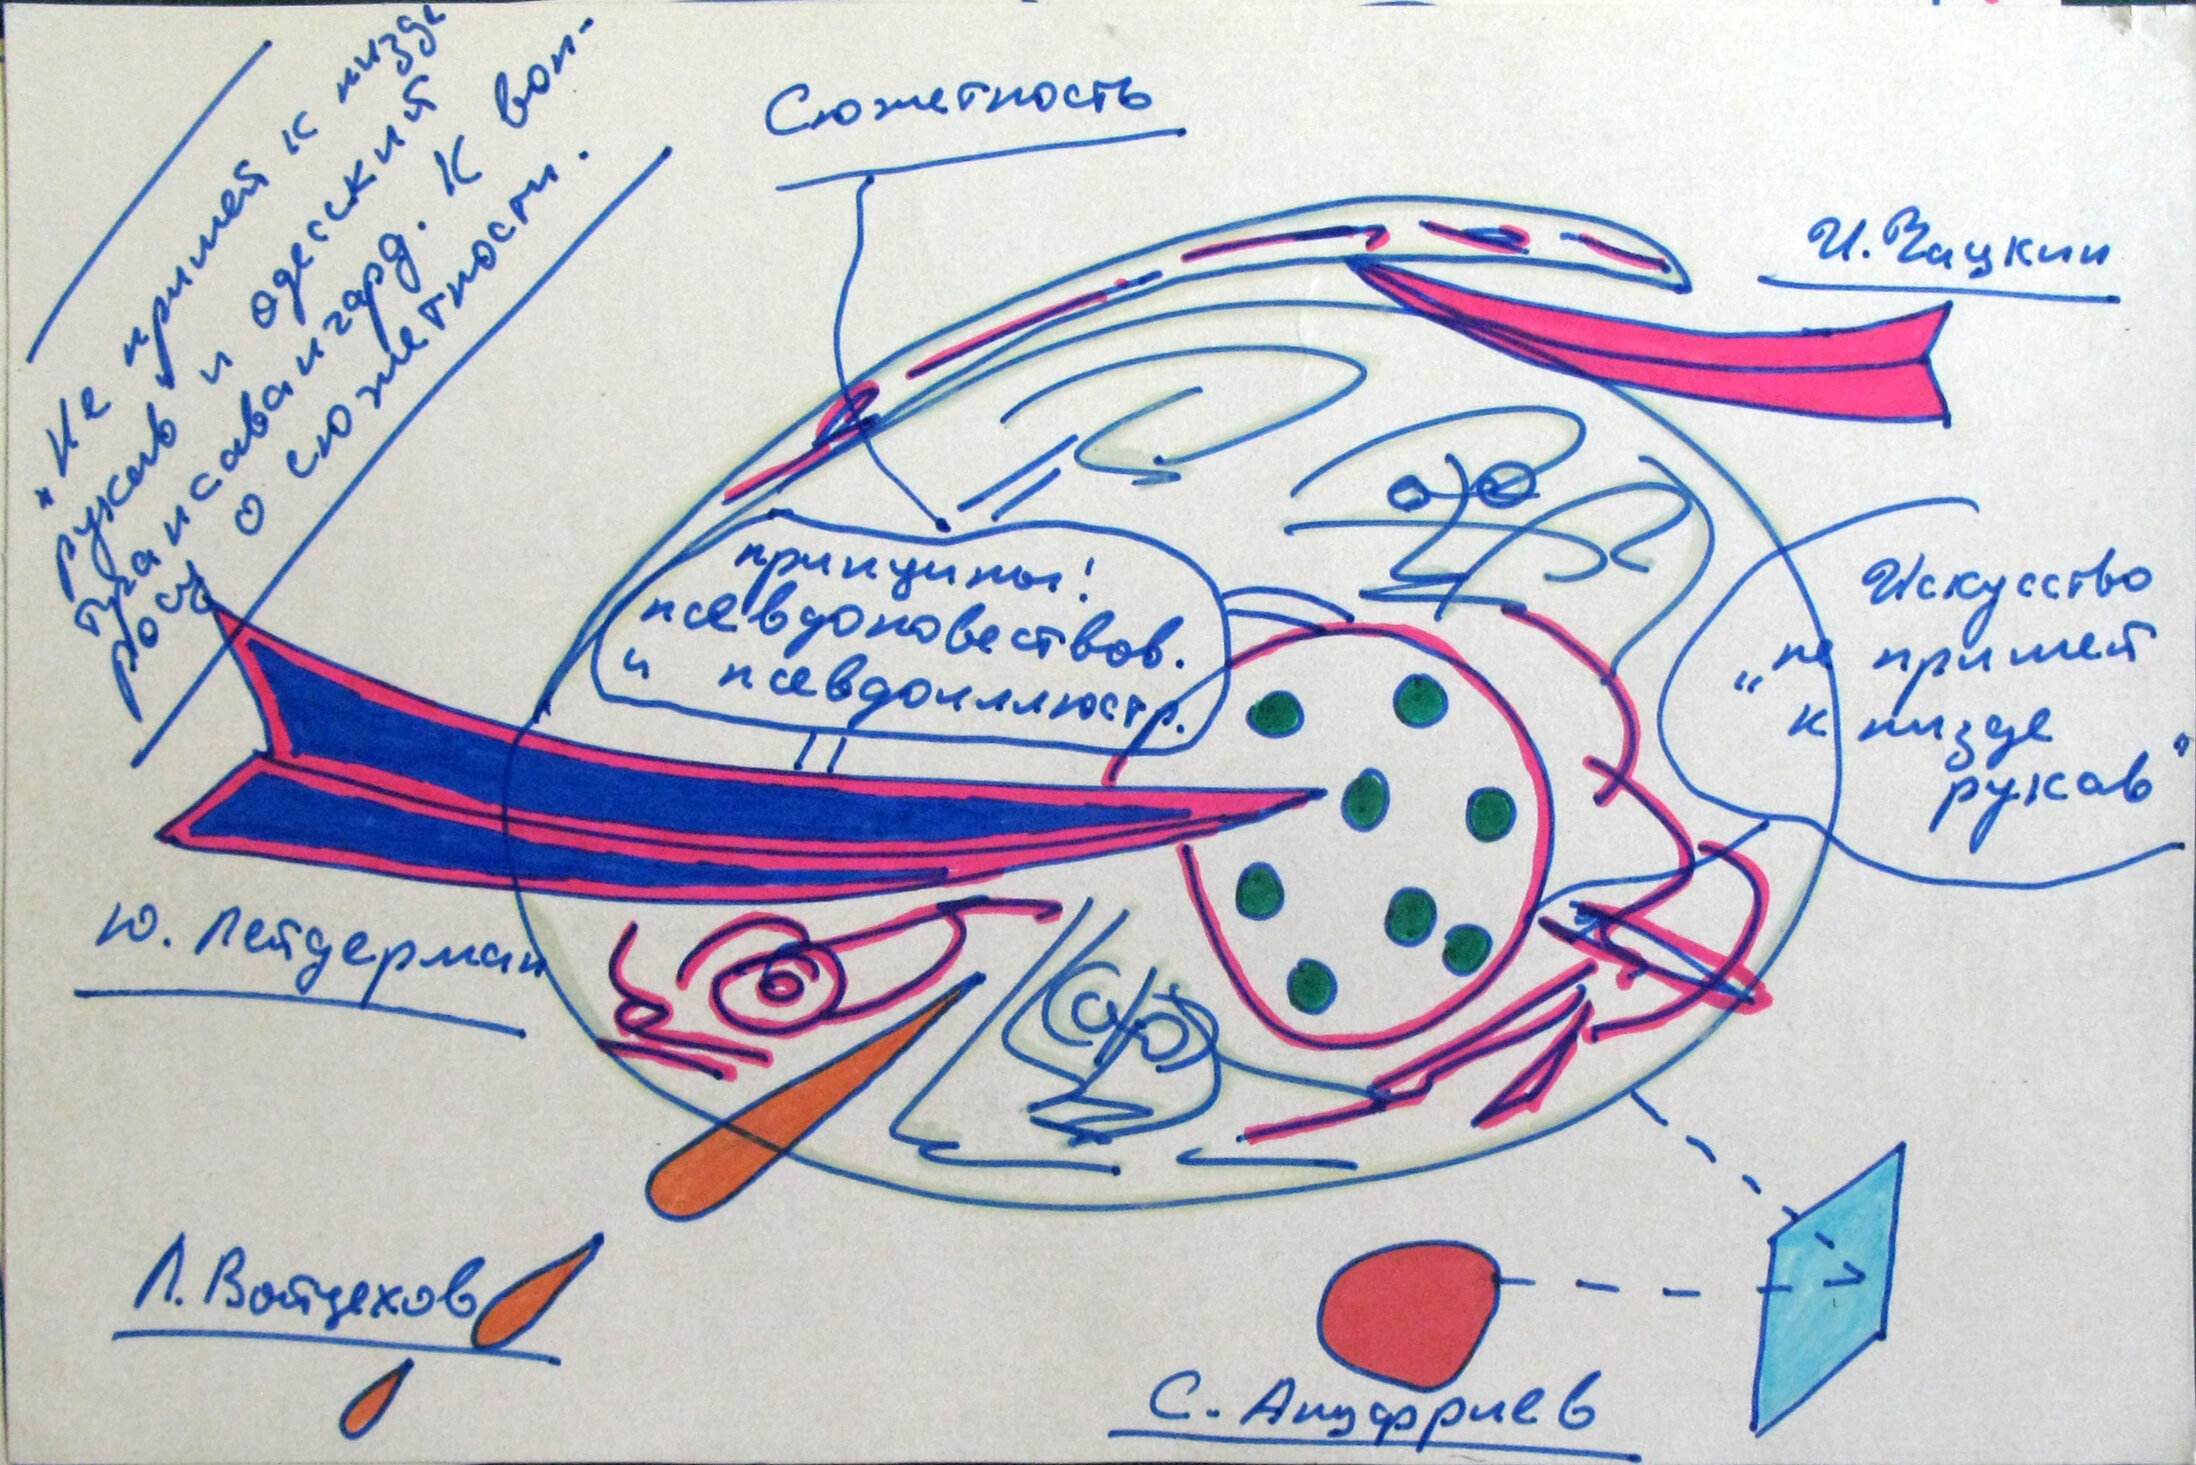 "Не пришей к пизде
рукав" и одесский
трансавангард. К воп-
росу о сюжетности.
Сюжетность
И. Чацкин
принципы!
псевдоповествов.
и псевдоиллюстр.
Искусство
"не пришей
к пизде
рукав"
Ю. Лейдерман
Л. Войцехов
С. Ануфриев